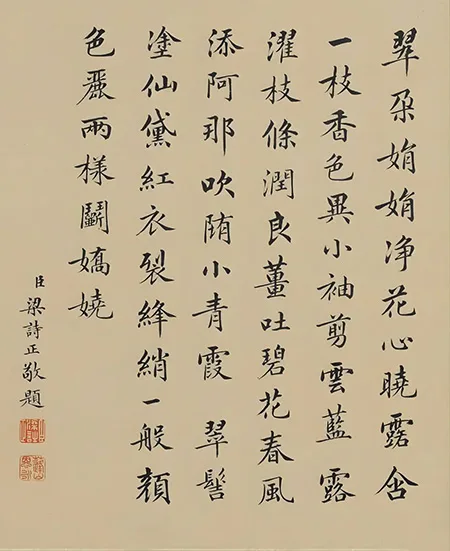 翠朵娟娟净花心曉露含
一枝香色異小袖剪雲藍 露
濯枝條潤良薑吐碧花春風
添阿那吹堕小青霞 翠髻
塗仙黛紅衣裂絳綃一般顔
色麗兩樣鬭嬌嬈
臣梁詩正敬題